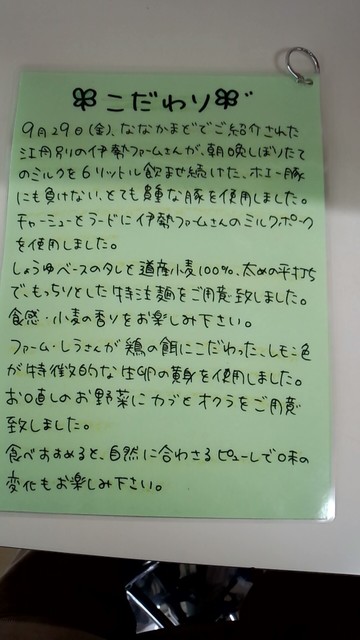 こだわり
9月29日(金)、ななかまどでご紹介された
江丹別の伊勢ファームさんが、朝晩しぼりたて
のミルクを6リットル飲ませ続けた、ホエー豚
にも負けない、とても貴重な豚を使用しました。
チャーシューとラードに伊勢ファームさんのミルクポーク
を使用しました。
しょうゆベースのタレと道産小麦100%、太めの平打ち
で、もっちりとした特注麺をご用意致しました。
食感・小麦の香りをお楽しみ下さい。
ファーム・しらさんが鶏の餌にこだわった、レモン色
が特徴的な生卵の黄身を使用しました。
お口直しのお野菜にカブとオクラをご用意
致しました。
食べすすめると、自然に合わさるピューレで味の
変化もお楽しみ下さい。